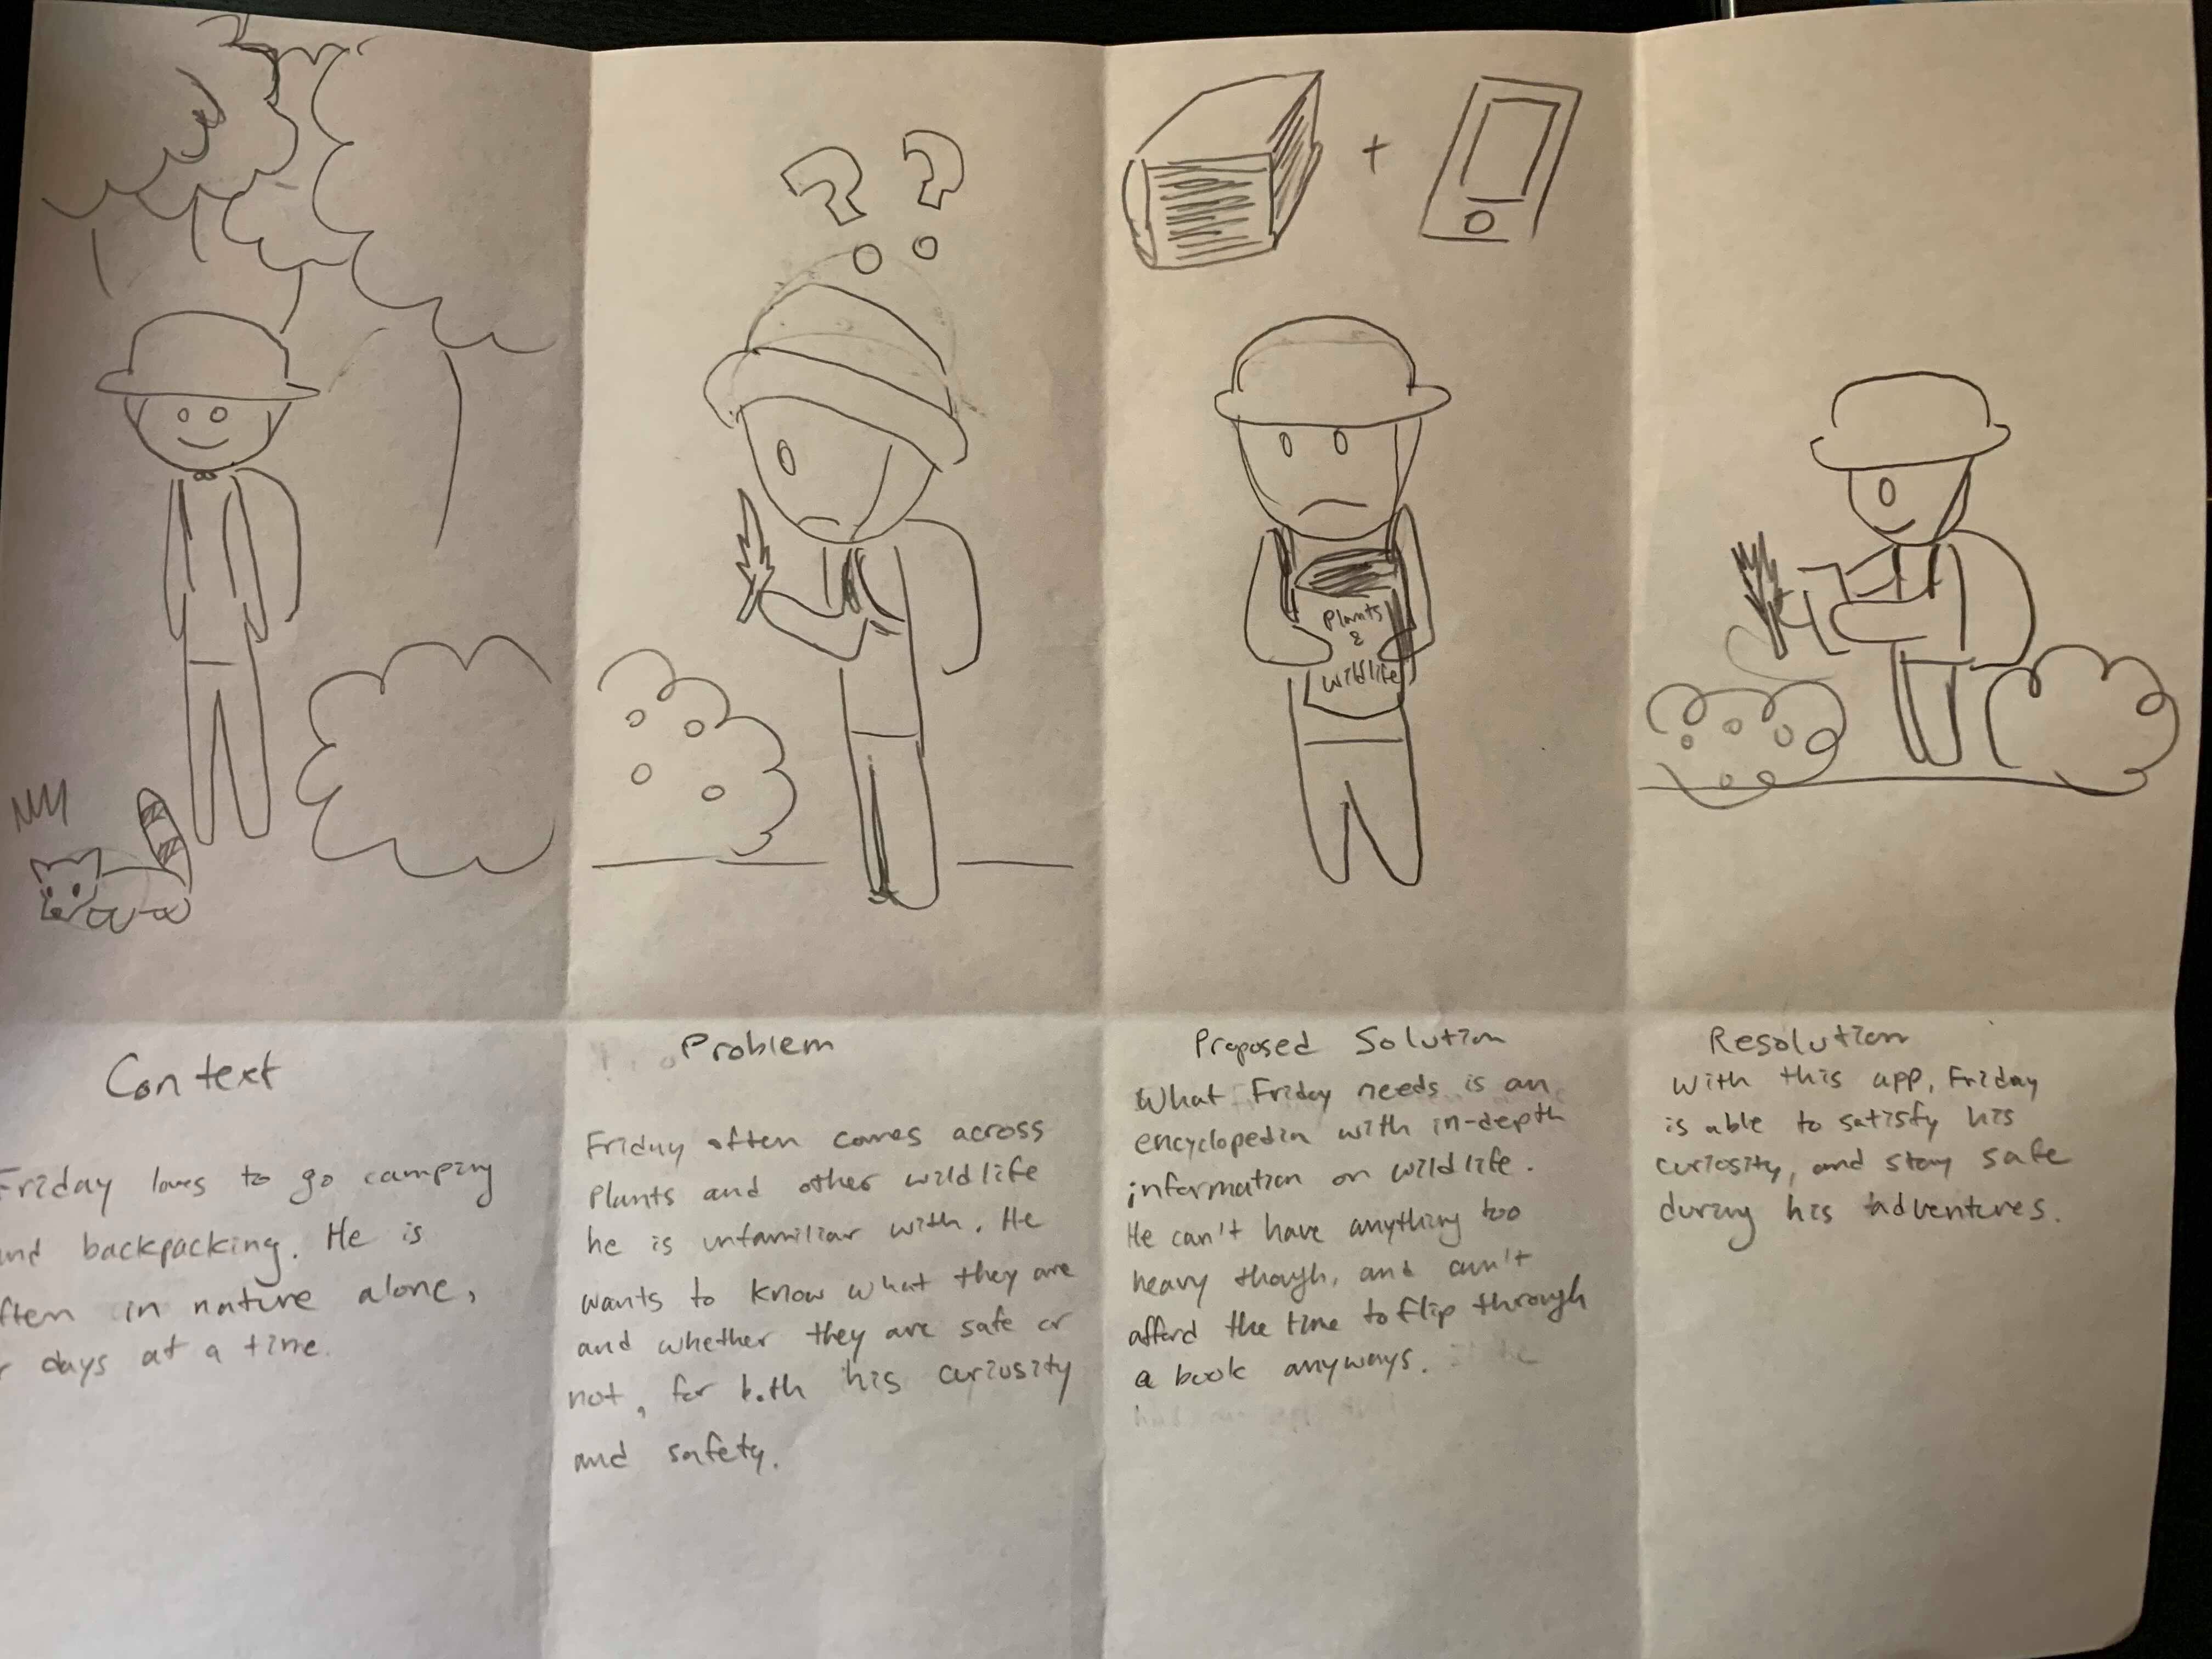 Plants
&
wildlife
Context
Friday loves to go camping
and backpacking. He is
often in nature alone,
days at a time.
Problem
Friday often comes across
plants and other wildlife
he is unfamiliar with. He
wants to know what they are
and whether they are safe or
not, for both his curiosity
and safety.
Proposed Solution
What Friday needs is an
encyclopedia with in-depth
information on wildlife.
He can't have anything too
heavy though, and can't
afford the time to flip through
a book anyways.
Resolution
With this app, Friday
is able to satisfy his
curiosity, and stay safe
during his adventures.